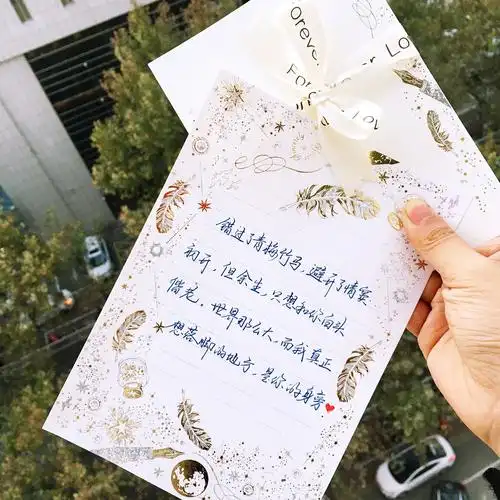 Forever
Lo
For
Lov
错过了青梅竹马,避开了情窦
初开,但余生,只想和你白头
偕老,世界那么大,而我真正
想落脚的地方,是你的身旁